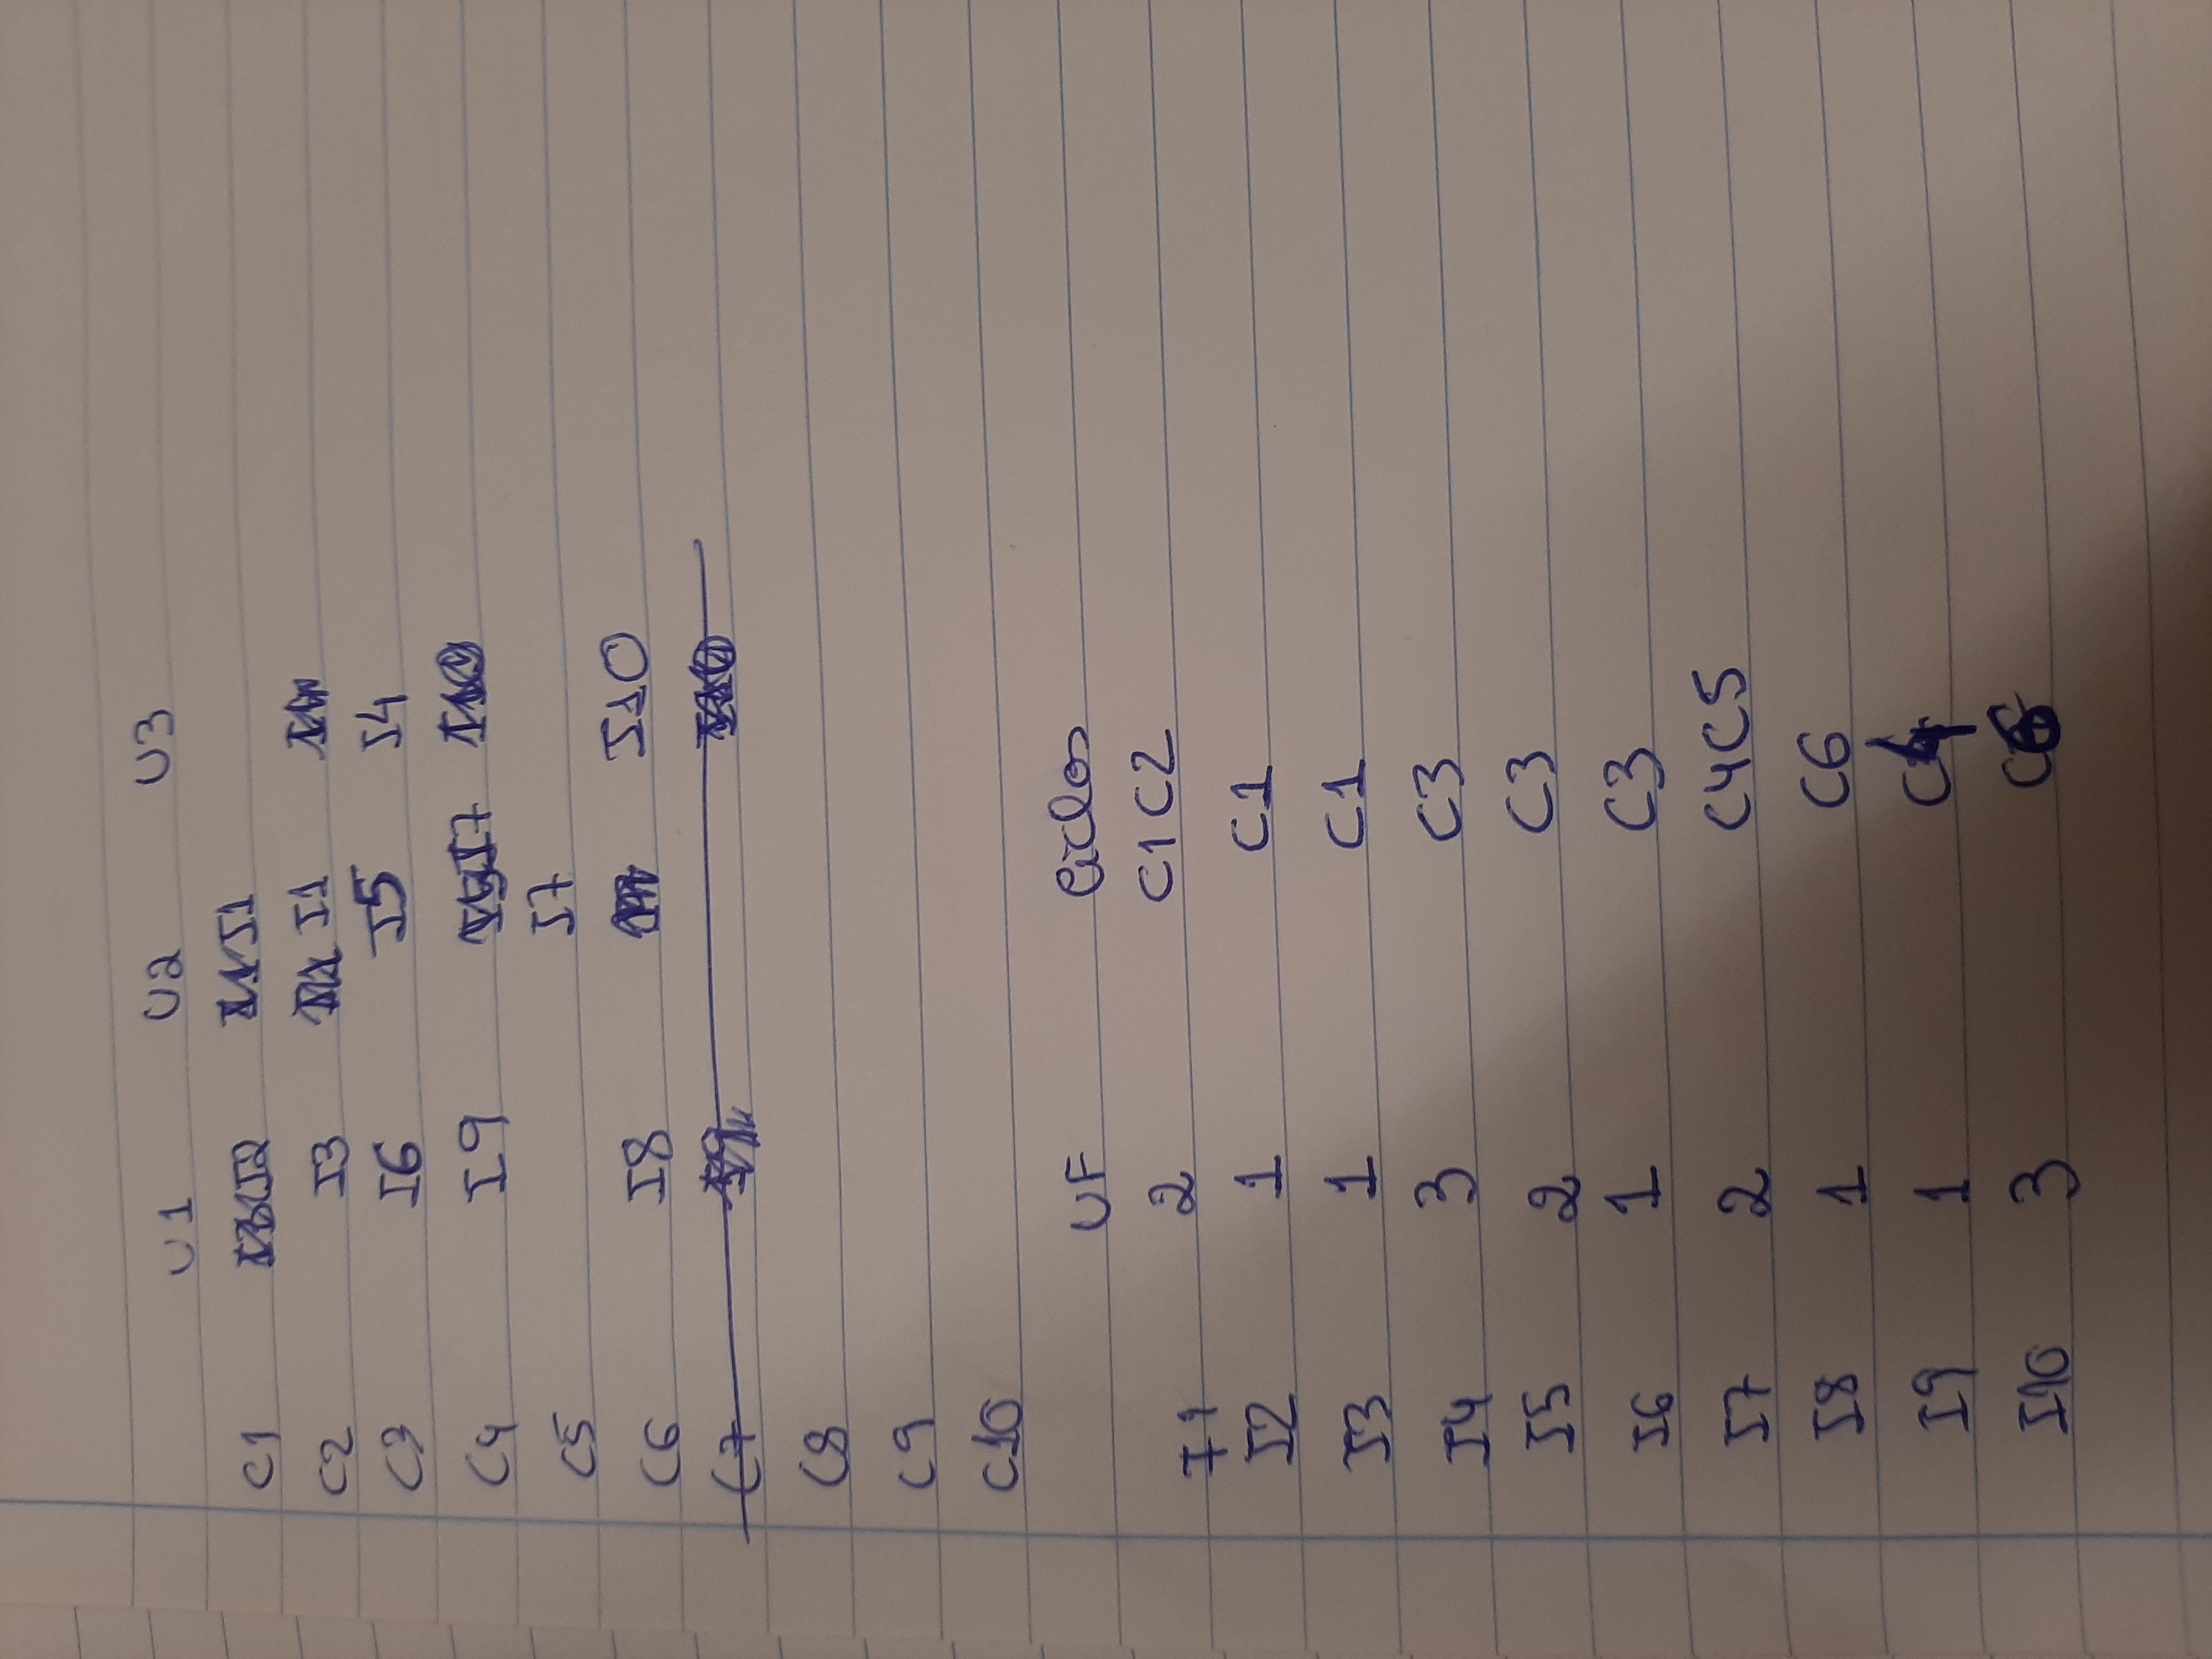 U1 U2 U3
C1 I2 I1
C2 I3 I1
C3 I6 I5 I4
C4 I9 I7
C5 I7
C6 I8 I10
C7
C8
C9
C10
UF Ciclos
I1 2 C1 C2
I2 1 C1
I3 1 C1
I4 3 C3
I5 2 C3
I6 1 C3
I7 2 C4C5
I8 1 C6
I9 1 C4
I10 3 C6